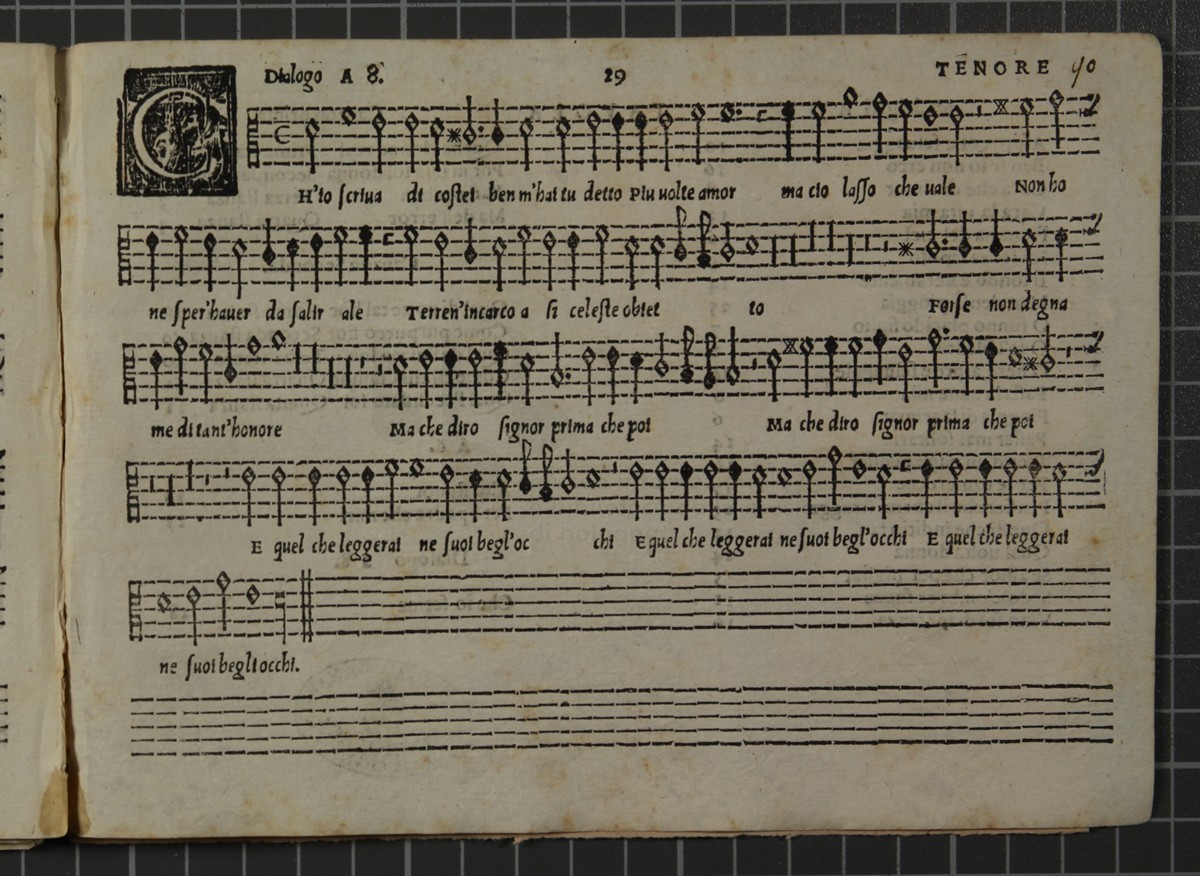 Dialogo A 8. 29 TENORE 40
CH'io scriua di costei ben m'hai tu detto Piu uolte amor ma cio lasso che uale Non ho
ne sper'hauer da salir ale Terren'incarco a si celeste obiet to Forse non degna
me di tant'honore Ma che diro signor prima che poi Ma che diro signor prima che poi
E quel che leggerai ne suoi begl'oc chi E quel che leggerai ne suoi begl'occhi E quel che leggerai
ne suoi begli occhi.